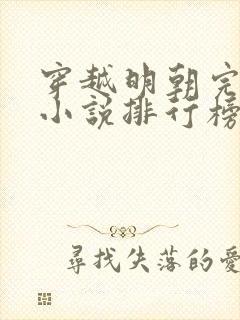 穿越明朝完
小說排行榜
尋找失落的愛